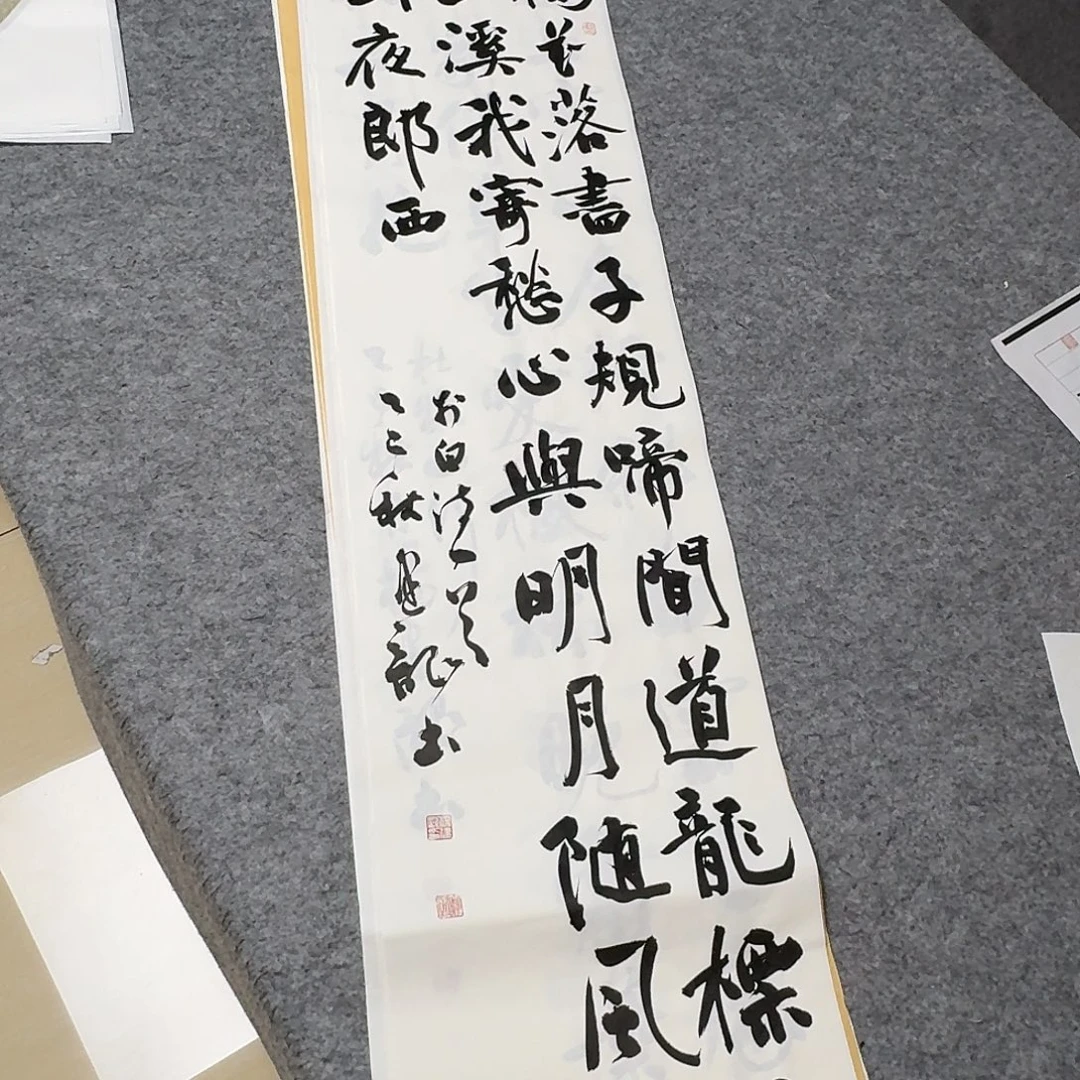 花落盡子規啼聞道龍標
溪我寄愁心與明月随風
夜郎西
李白诗一首
乙巳秋建龍书